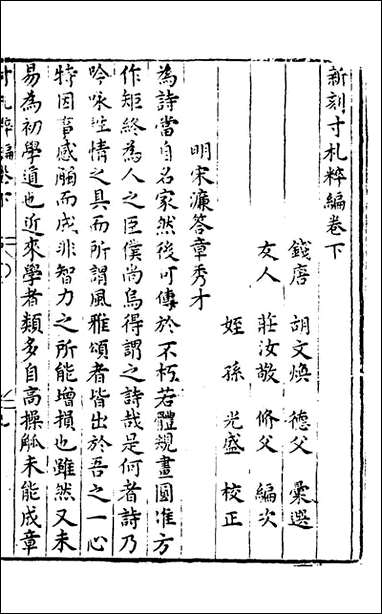 新刻寸札粹編卷下
錢唐 胡文煥 德父 彙選
友人 莊汝敬 修父 編次
姪孫 光盛 校正
明宋濂答章秀才
為詩當自名家然後可傳於不朽若體規畫圓准方
作矩終為人之臣僕尚烏得謂之詩哉是何者詩乃
吟咏性情之具而所謂風雅頌者皆出於吾之一心
特因事感觸而成非智力之所能增損也雖然又未
易為初學道也近來學者類多自高操觚未能成章
寸札粹編卷下